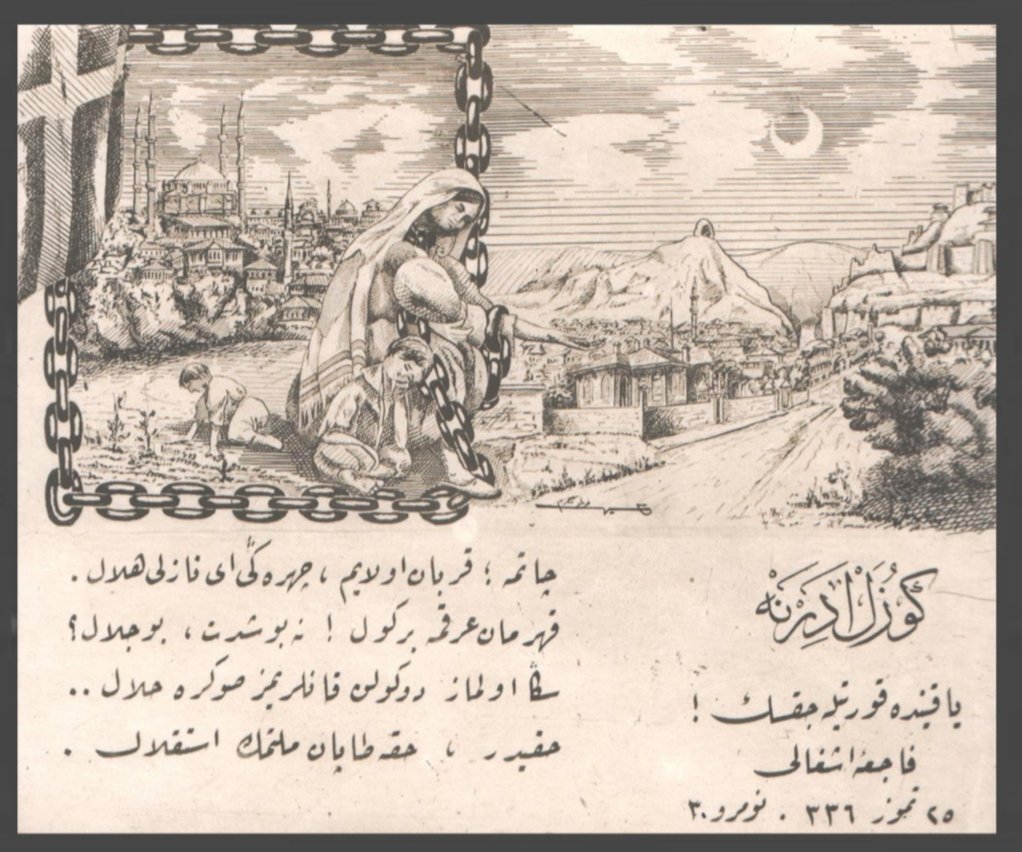 كوزل ادرنه
ياقينده قورتيله جقسك !
فاجعهٔ اشغالی
٢٥ تموز ٣٣٦ . نومرو ٣٠
چاتمه ؛ قربان اولايم ، چهره كی ای نازلی هلال .
قهرمان عرقمه بر كول ! نه بو شدت ، بو جلال ؟
سكا اولماز دوكولن قانلريمز صوكره حلال ..
حقيدر ، حقه طاپان ملتمك استقلال .